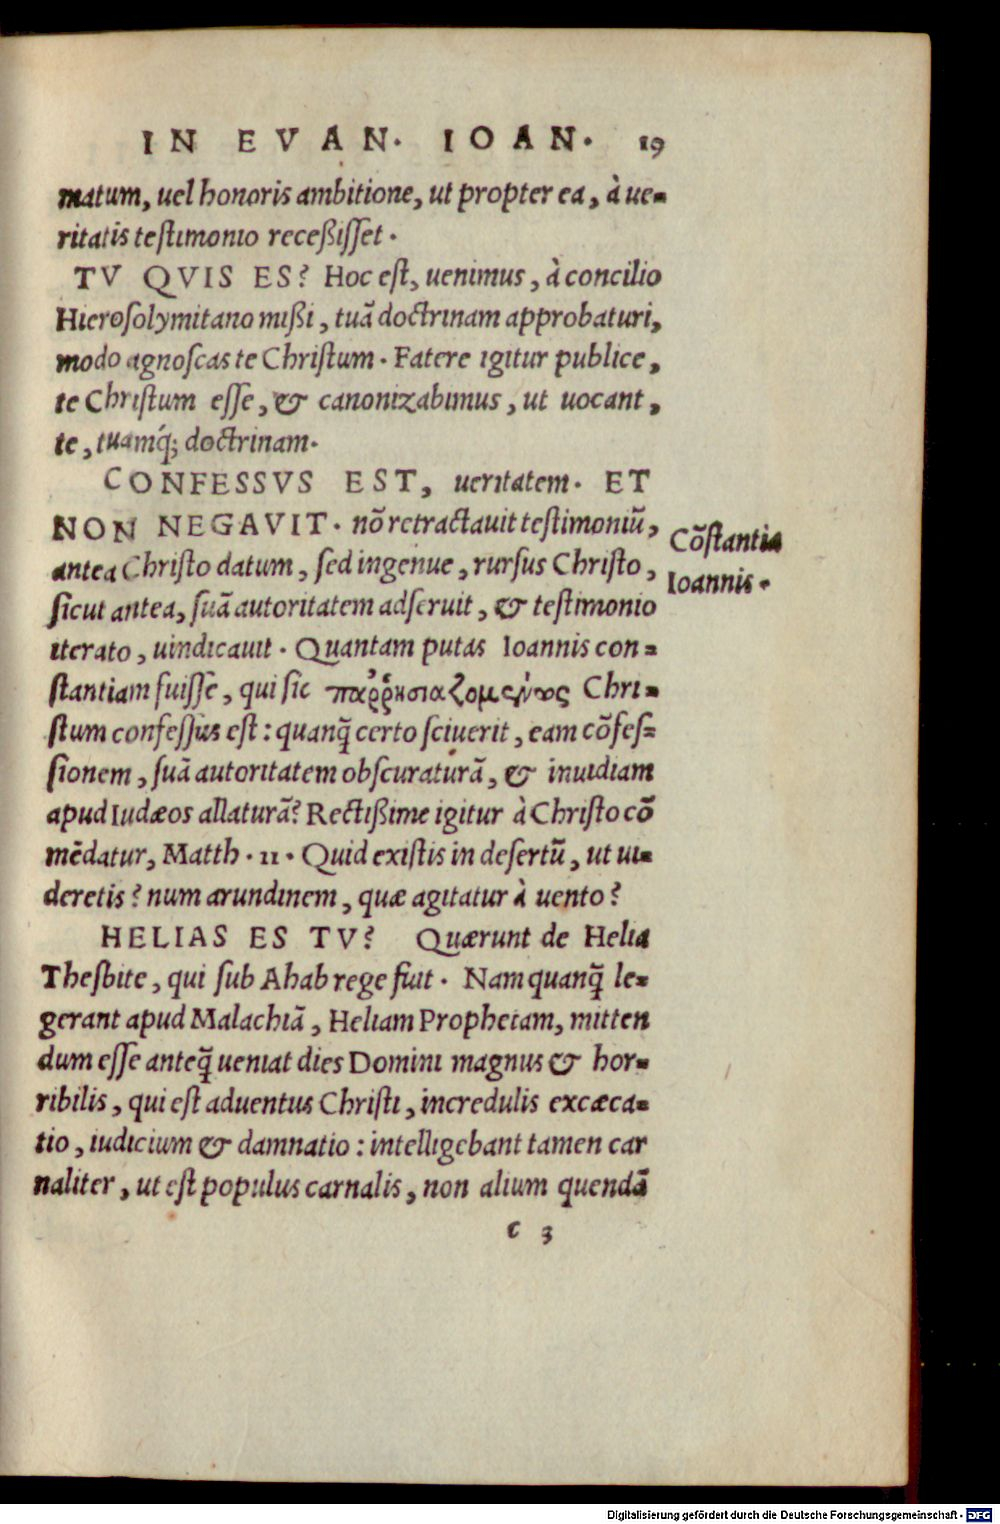 IN EVAN. IOAN. 19
matum, uel honoris ambitione, ut propter ea, à ue=
ritatis testimonio receßisset.
TV QVIS ES? Hoc est, uenimus, à concilio
Hierosolymitano mißi, tuã doctrinam approbaturi,
modo agnoscas te Christum. Fatere igitur publice,
te Christum esse, & canonizabimus, ut uocant,
te, tuamq́; doctrinam.
CONFESSVS EST, ueritatem. ET
NON NEGAVIT. nõ retractauit testimoniũ,
antea Christo datum, sed ingenue, rursus Christo,
sicut antea, suã autoritatem adseruit, & testimonio
iterato, uindicauit. Quantam putas Ioannis con=
stantiam fuisse, qui sic παῤῥησιαζομένως Chri=
stum confessus est: quanq̃ certo sciuerit, eam cõfes=
sionem, suã autoritatem obscuraturã, & inuidiam
apud Iudæos allaturã? Rectißime igitur à Christo cõ
mẽdatur, Matth. 11. Quid existis in desertũ, ut ui=
deretis? num arundinem, quæ agitatur à uento?
HELIAS ES TV? Quærunt de Helia
Thesbite, qui sub Ahab rege fuit. Nam quanq̃ le=
gerant apud Malachiã, Heliam Prophetam, mitten
dum esse anteq̃ ueniat dies Domini magnus & hor=
ribilis, qui est aduentus Christi, incredulis excæca=
tio, iudicium & damnatio: intelligebant tamen car
naliter, ut est populus carnalis, non alium quendã
c 3
Cõstantia
Ioannis.
Digitalisierung gefördert durch die Deutsche Forschungsgemeinschaft - DFG